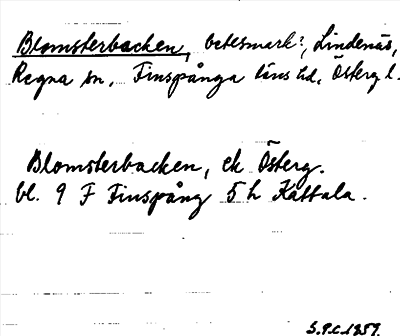 Blomsterbacken, betesmark?, Lindenäs,
Regna sn, Finspånga läns hd, Österg l.
Blomsterbacken, ek Österg.
bl. 9 F Finspång 5 h Kattala.
S.g.c. 1857.